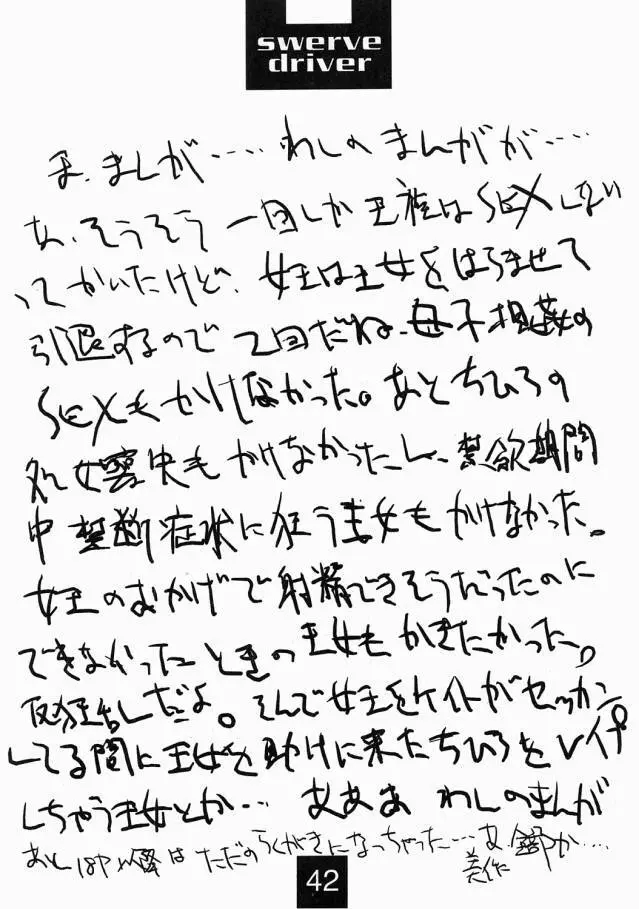 swerve
driver
ま、まんが‥‥ わしの まんがが‥‥
あ、そうそう 一回しか 王族は SEXしない
ってかいたけど、女王は王女をはらませて
引退するので 2回だね、母子相姦の
SEXもかけなかった。あとちひろの
処女喪失も かけなかったし、禁欲期間
中 禁断症状に狂う王女もかけなかった。
女王のおかげで射精できそうだったのに
できなかったときの王女も かきたかった。
しだよ。そんで女王をケイトがセッカン
してる間に王女を助けに来たちひろをレイプ
しちゃう王女とか… あああ わしのまんが
あと 以降は ただの らくがきになっちゃった…
42